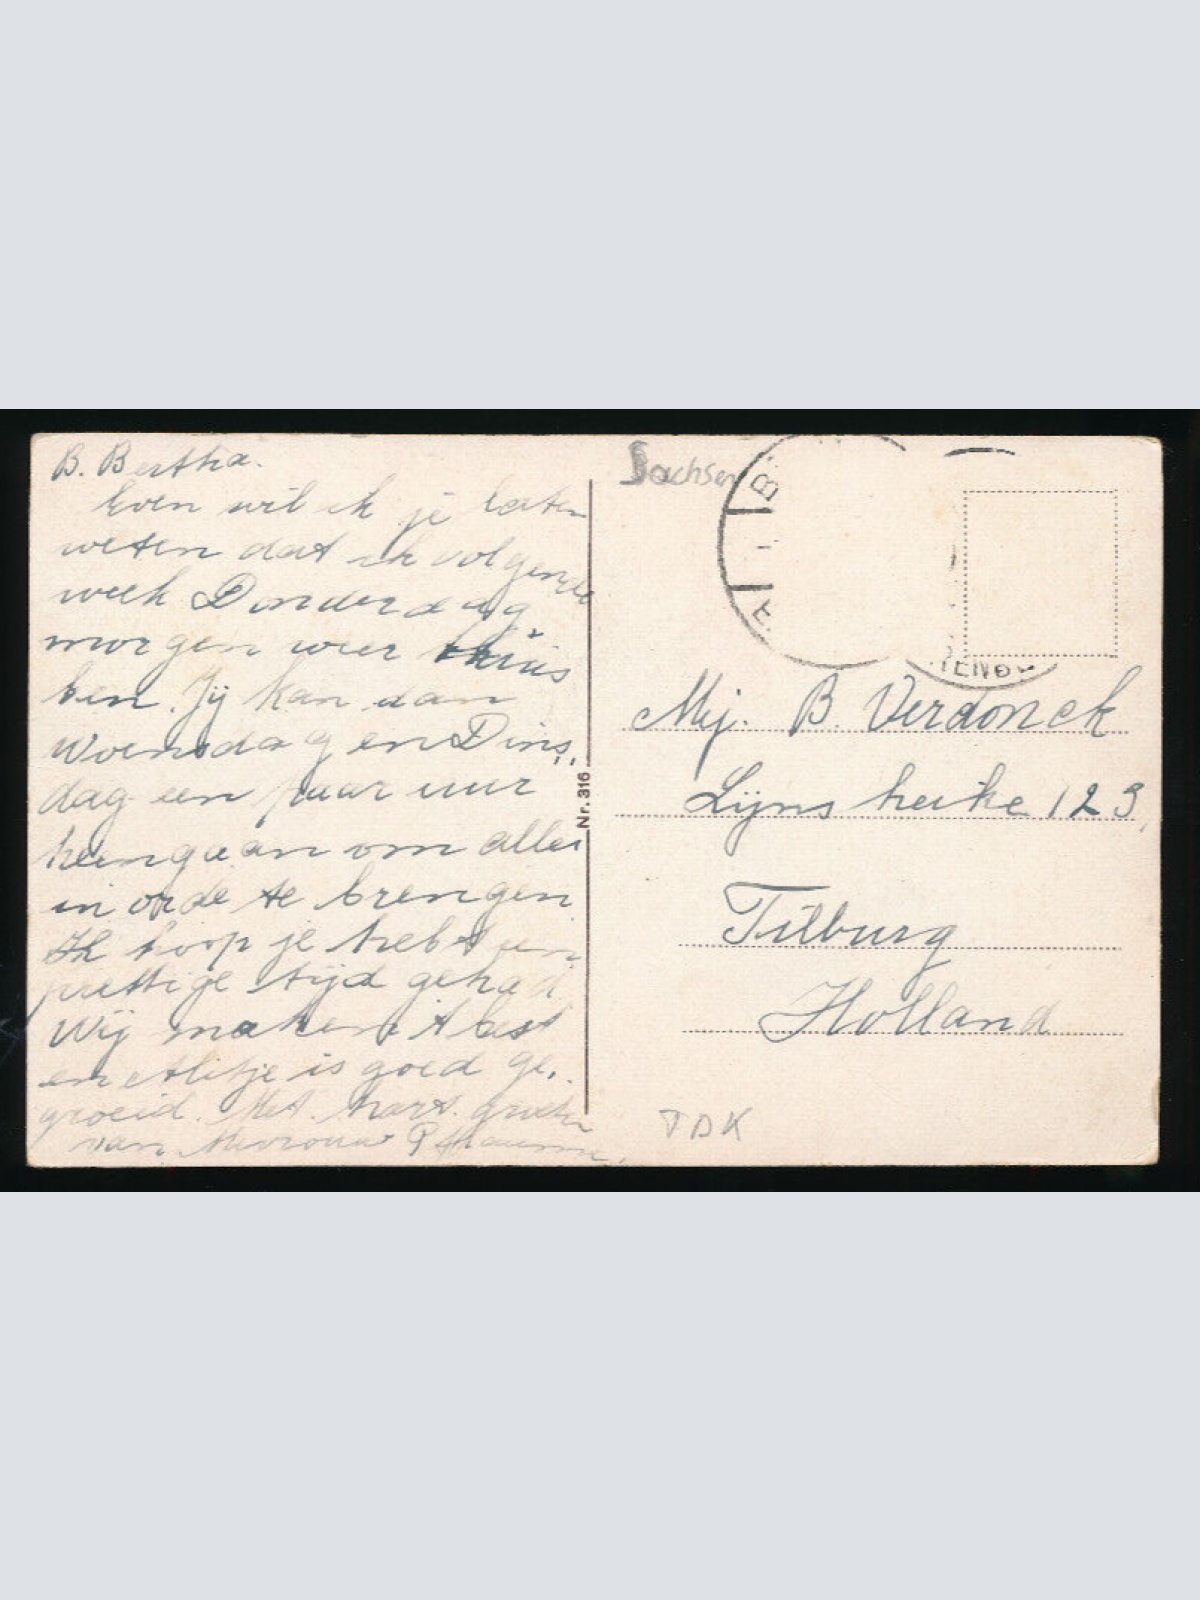 B. Bertha.
Even wil ik je laten
weten dat ik volgende
week Donderdag
morgen weer thuis
ben. Jij kan dan
Woensdag en Dins,,
dag een paar uur
heengaan om alles
in orde te brengen
Ik hoop je hebt een
prettige tijd gehad
Wij maken 't best
en is goed ge,.
groeid. Met hart. groeten
van Mevrouw
Nr. 316
Sachsen
B.
TENB
Mej. B. Verdonck
Lijnsheike 123,
Tilburg
Holland
TDK